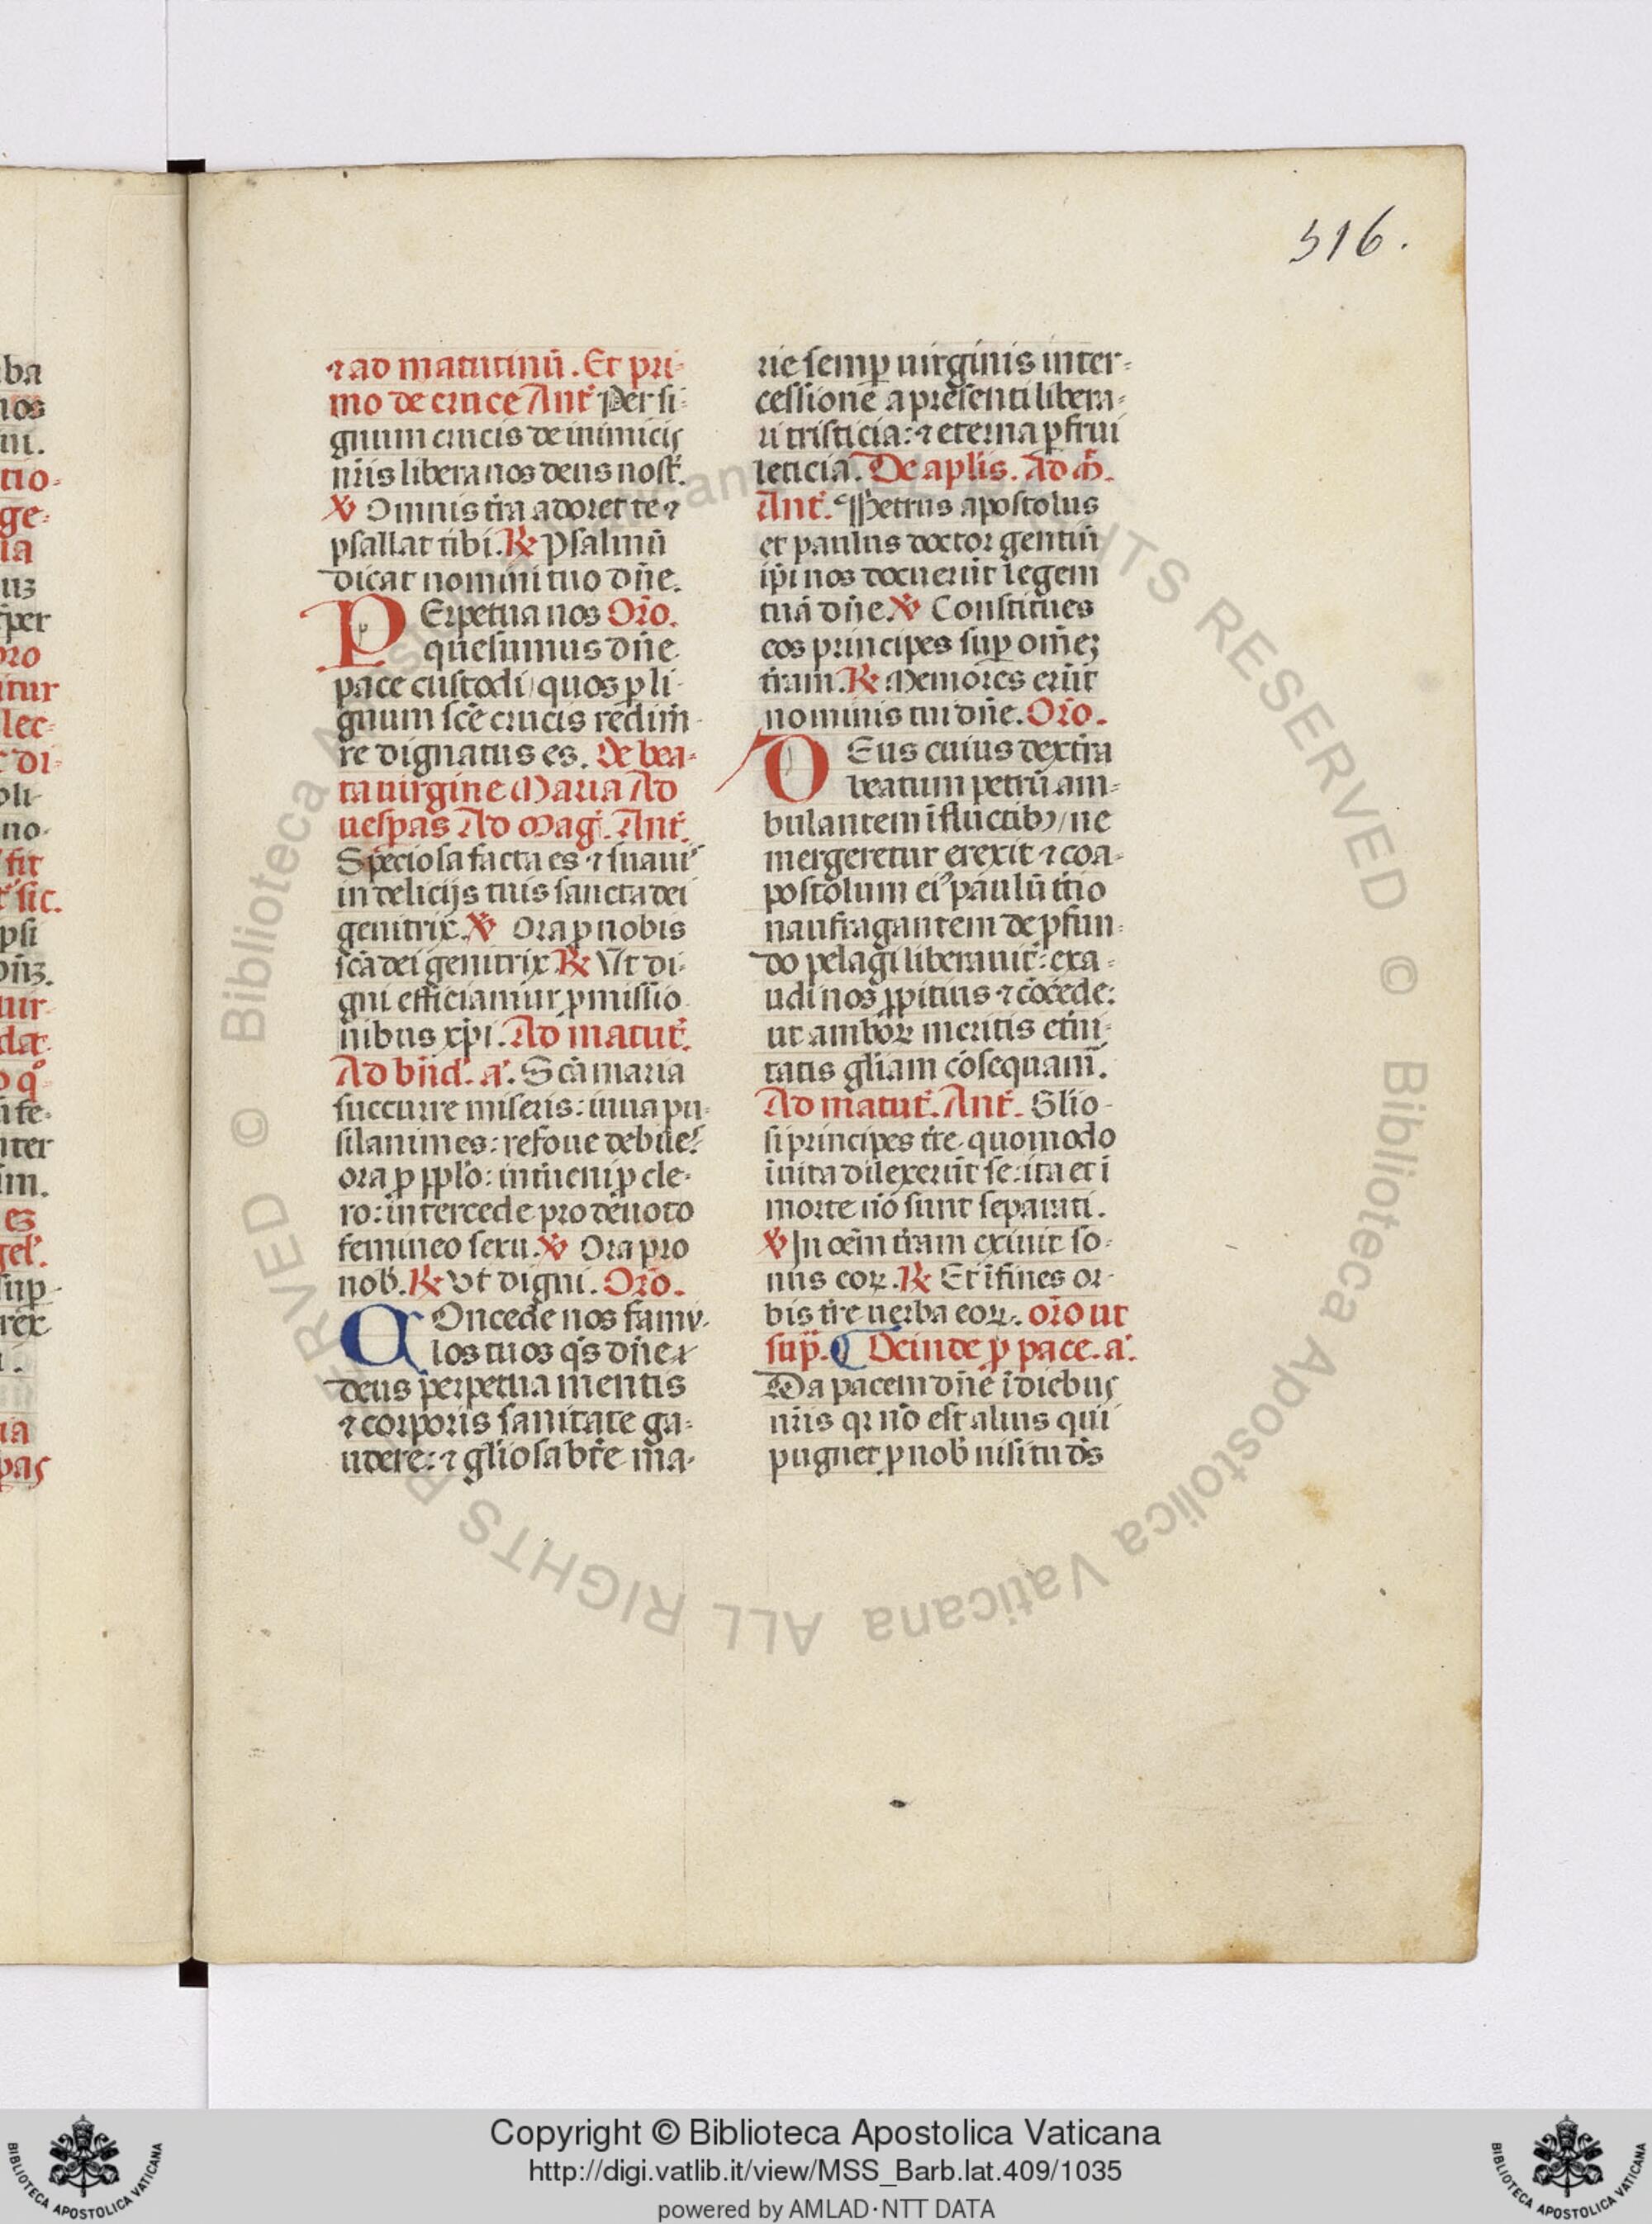 516.
⁊ ad matutinū. Et pri-
mo de cruce Ant̄ Per si-
gnum crucis de inimicis
nr̄is libera nos deus nost̄.
℣ Omnis t̄ra adoret te ⁊
psallat tibi. ℟ Psalmū
dicat nomini tuo dn̄e.
PErpetua nos Or̄o.
quesumus dn̄e
pace custodi quos ꝑ li-
gnum sc̄e crucis redim̄-
re dignatus es. De bea-
ta uirgine Maria Ad
uesp̄as Ad Maḡ. Ant̄.
Speciosa facta es ⁊ suauis
in delicijs tuis sancta dei
genitrix. ℣ Ora ꝓ nobis
sc̄a dei genitrix ℟ Vt di-
gni efficiamur ꝓmissio
nibus xp̄i. Ad matut̄.
Ad bn̄d̄. a̅. Sc̄a maria
succurre miseris: iuua pu-
silanimes: refoue debiles
ora ꝓ pp̄lo: int̄ueni ꝓ cle-
ro: intercede pro deuoto
femineo sexu. ℣ Ora pro
nob̄. ℟ Vt digni. Or̄o.
COncede nos famu-
los tuos q̄s dn̄e
deus perpetua mentis
⁊ corporis sanitate ga-
udere: ⁊ gl̄iosa bt̄e ma-
rie semꝑ uirginis inter-
cessione a presenti libera-
ri tristicia: ⁊ eterna ꝑfrui
leticia. De ap̄lis. Ad m̄.
Ant̄. Petrus apostolus
et paulus doctor gentiū
ip̄i nos docuerūt legem
tuā dn̄e ℣ Constitues
eos principes suꝑ om̄eꝫ
t̄ram. ℟ Memores erūt
nominis tui dn̄e. Or̄o.
DEus cuius dext̄ra
beatum petrū am-
bulantem ī fluctibꝫ / ne
mergeretur erexit ⁊ coa-
postolum eiꝰ paulū t̄cio
naufragantem de ꝓfun-
do pelagi liberauit: exa-
udi nos ꝓpitius ⁊ cōcede:
ut amboꝝ meritis et̄ni-
tatis gl̄iam cōsequam̄.
Ad matut̄. Ant̄. Glio-
si principes t̄re quomodo
ī uita dilexerūt se: ita et ī
morte nō sunt separati.
℣ In oēm t̄ram exiuit so-
nus eoꝝ. ℟ Et ī fines or-
bis t̄re uerba eoꝝ. or̄o ut
sup̄. ¶ Deinde ꝓ pace. a̅.
Da pacem dn̄e ī diebus
nr̄is qꝛ nō est alius qui
pugnet ꝓ nob̄ nisi tu d̄s
Copyright © Biblioteca Apostolica Vaticana
http://digi.vatlib.it/view/MSS_Barb.lat.409/1035
powered by AMLAD·NTT DATA